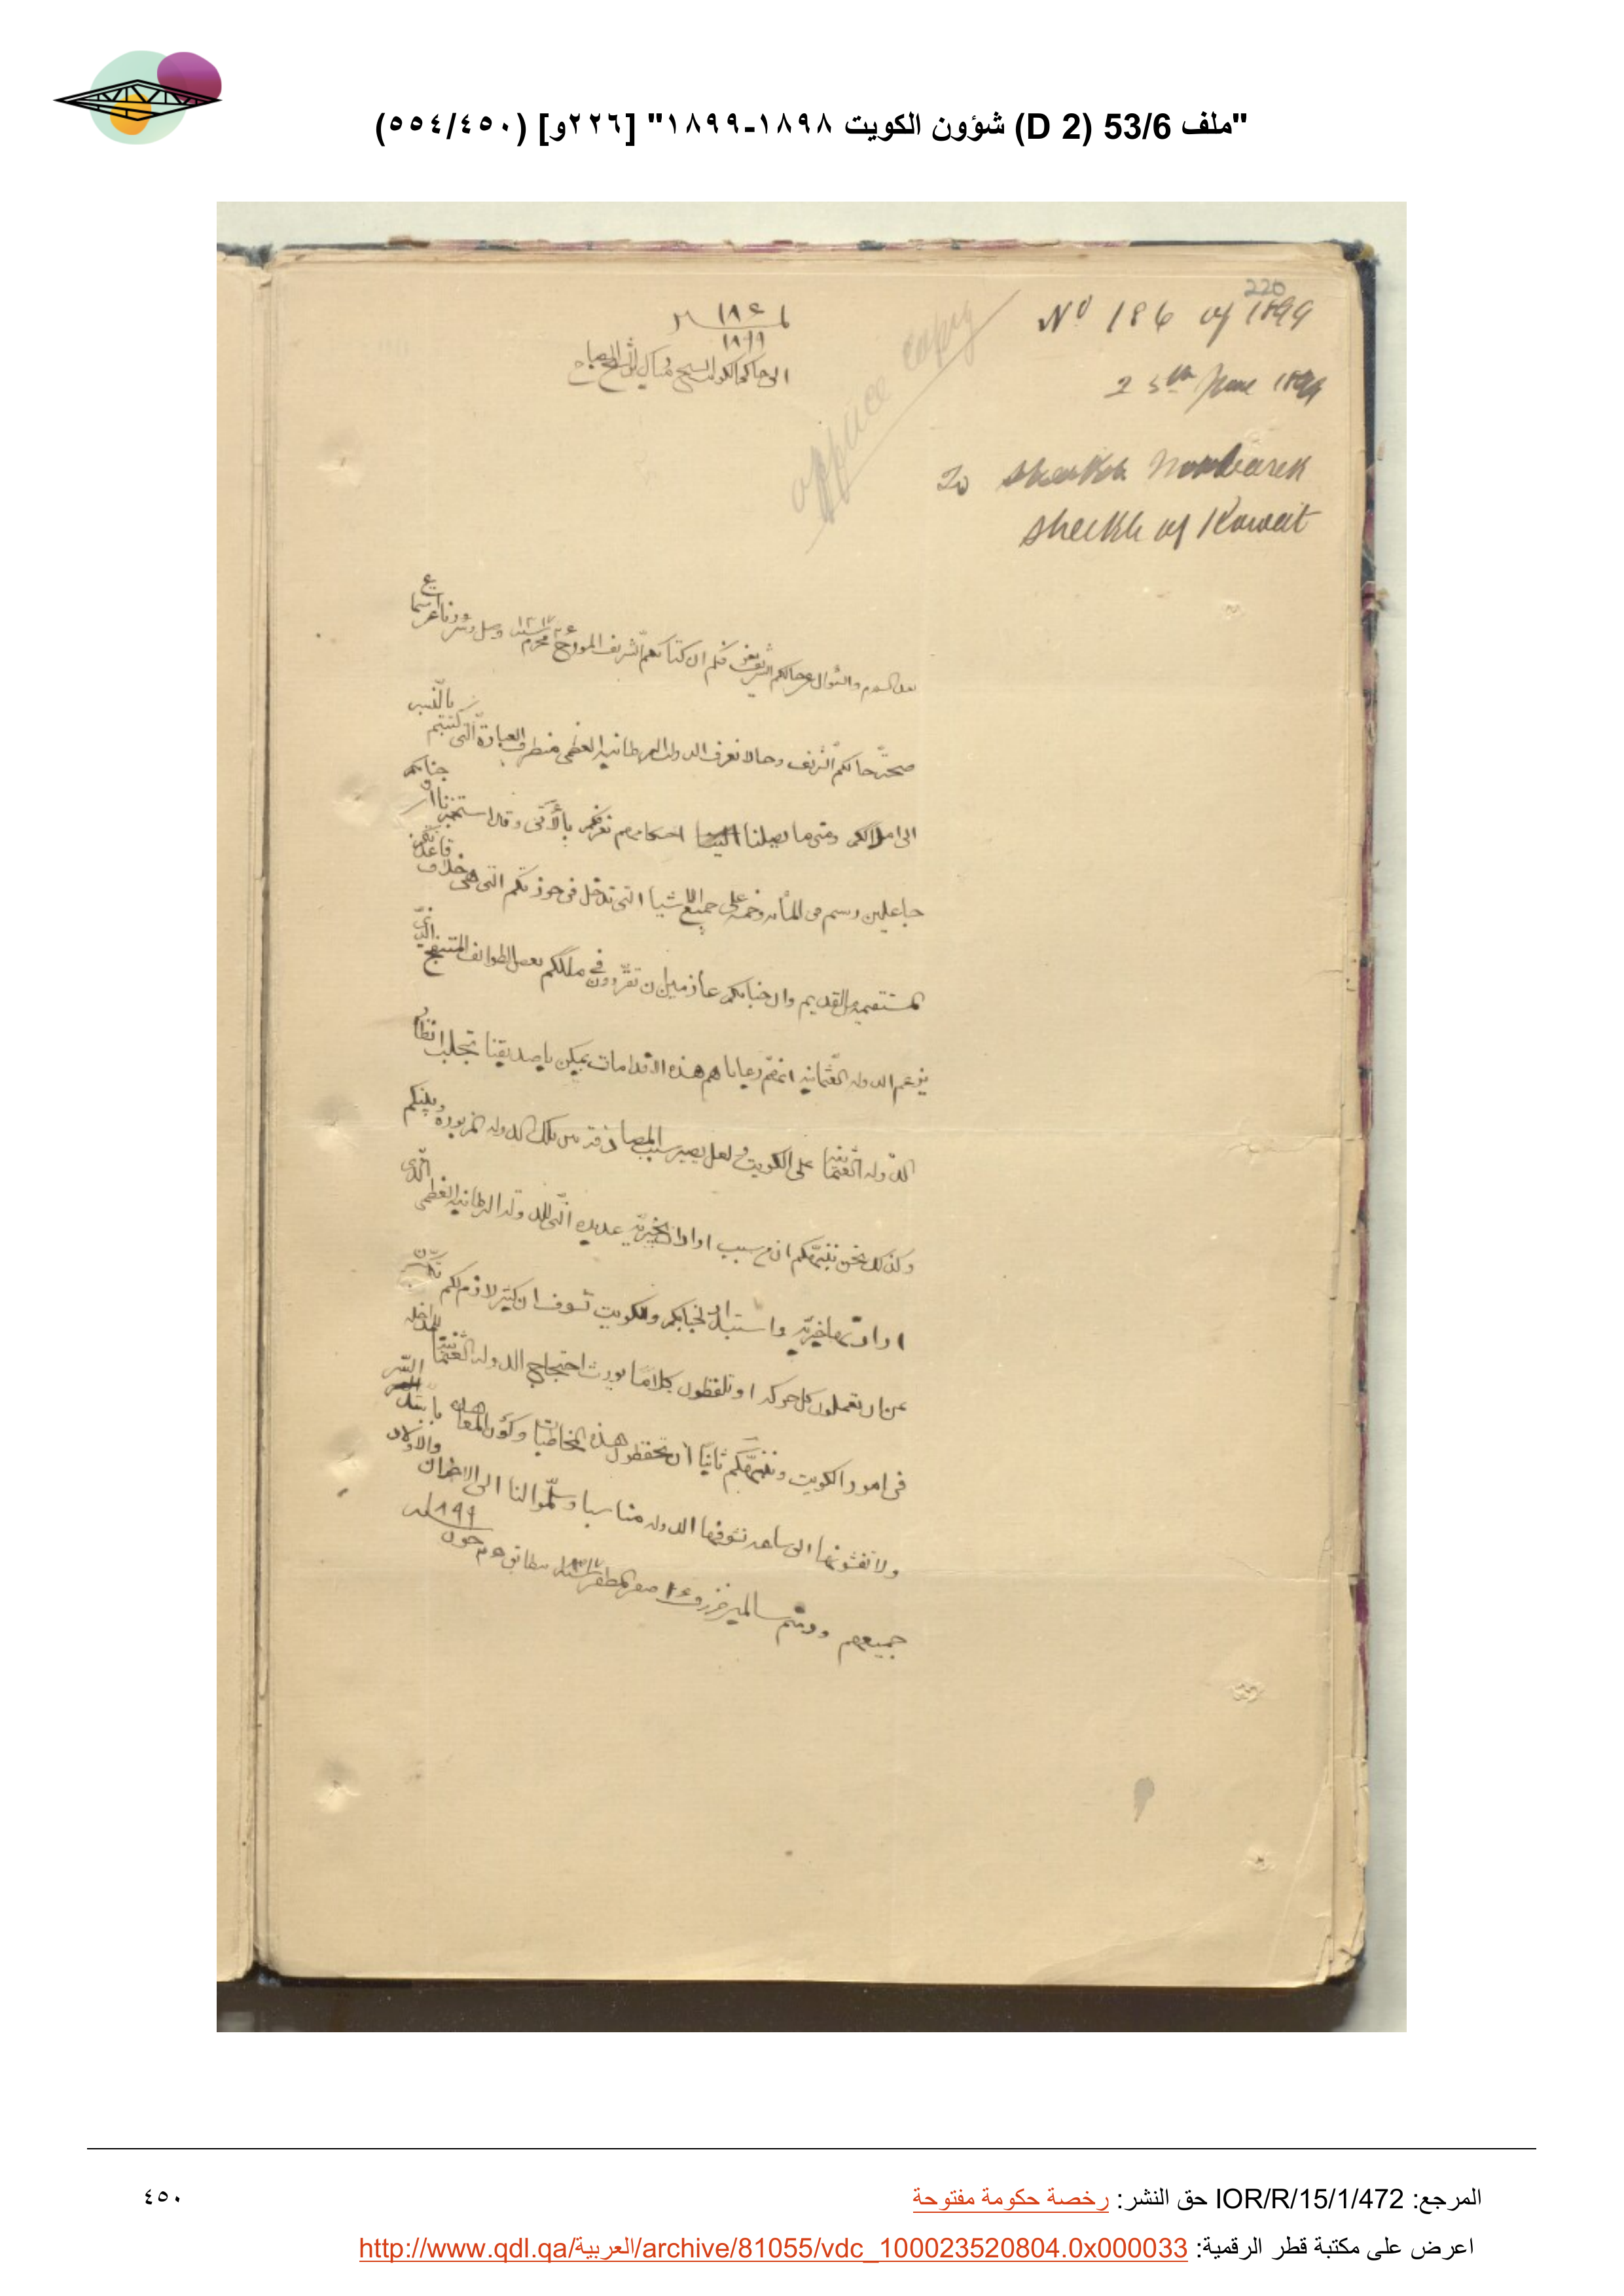 "ملف 53/6 (D 2) شؤون الكويت ١٨٩٨-١٨٩٩" [٢٢٦و] (٥٥٤/٤٥٠)
220
No 186 of 1899
25th June 1899
To Sheikh Moobarek
Sheikh of Kuwait
office copy
١٨٦
١٨٩٩
الى حاكم الكويت الشيخ مبارك الصباح
بعد السلام والسؤال عن حالكم الشريف نعرفكم ان كتابكم الشريف المؤرخ محرم ١٣١٧ وصل
صحة حالكم الشريف وحالا نعرف الدولة البريطانية العظمى من طرف العبارة التي كتبتم بالنسبه
الى املاككم ومتى ما يصلنا احكامهم نعرفكم بالآتي وقد استخبرنا ان جنابكم
جاعلين رسم في المأيه خمسه على جميع الاشيا التي تدخل في حوزتكم التي هي خلاف قاعدتكم
المستقيمه القديم وان جنابكم عازمين ان في ملككم بعض الطوائف المنتفج الذي
يزعم الدوله العثمانيه انهم رعاياهم هذه الاقدامات يمكن يا صديقنا تجلب انظار
الدوله العثمانيه على الكويت لعل يصير سبب بين تلك الدوله المزبوره وبينكم
وكذلك نحن ننبهكم ان من سبب اوادم عديده التي للدوله البريطانيه العظمى الذي
لجنابكم والكويت ان كثير لازم لكم
عن ان تعملون كل حركه او تلفظون كلاما يورث احتجاج الدوله العثمانيه للمداخله
في امور الكويت وننبهكم ثانيا ان تحفظون هذه المخاطبات السر
ولا تفشونها الى الدوله مناسبا وسلموا لنا الى الاخوان والاولاد
جميعهم ودمتم سالمين صفر المظفر ١٣١٧ مطابق ٢٥ جون ١٨٩٩
المرجع: IOR/R/15/1/472 حق النشر: رخصة حكومة مفتوحة
٤٥٠
اعرض على مكتبة قطر الرقمية: http://www.qdl.qa/العربية/archive/81055/vdc_100023520804.0x000033